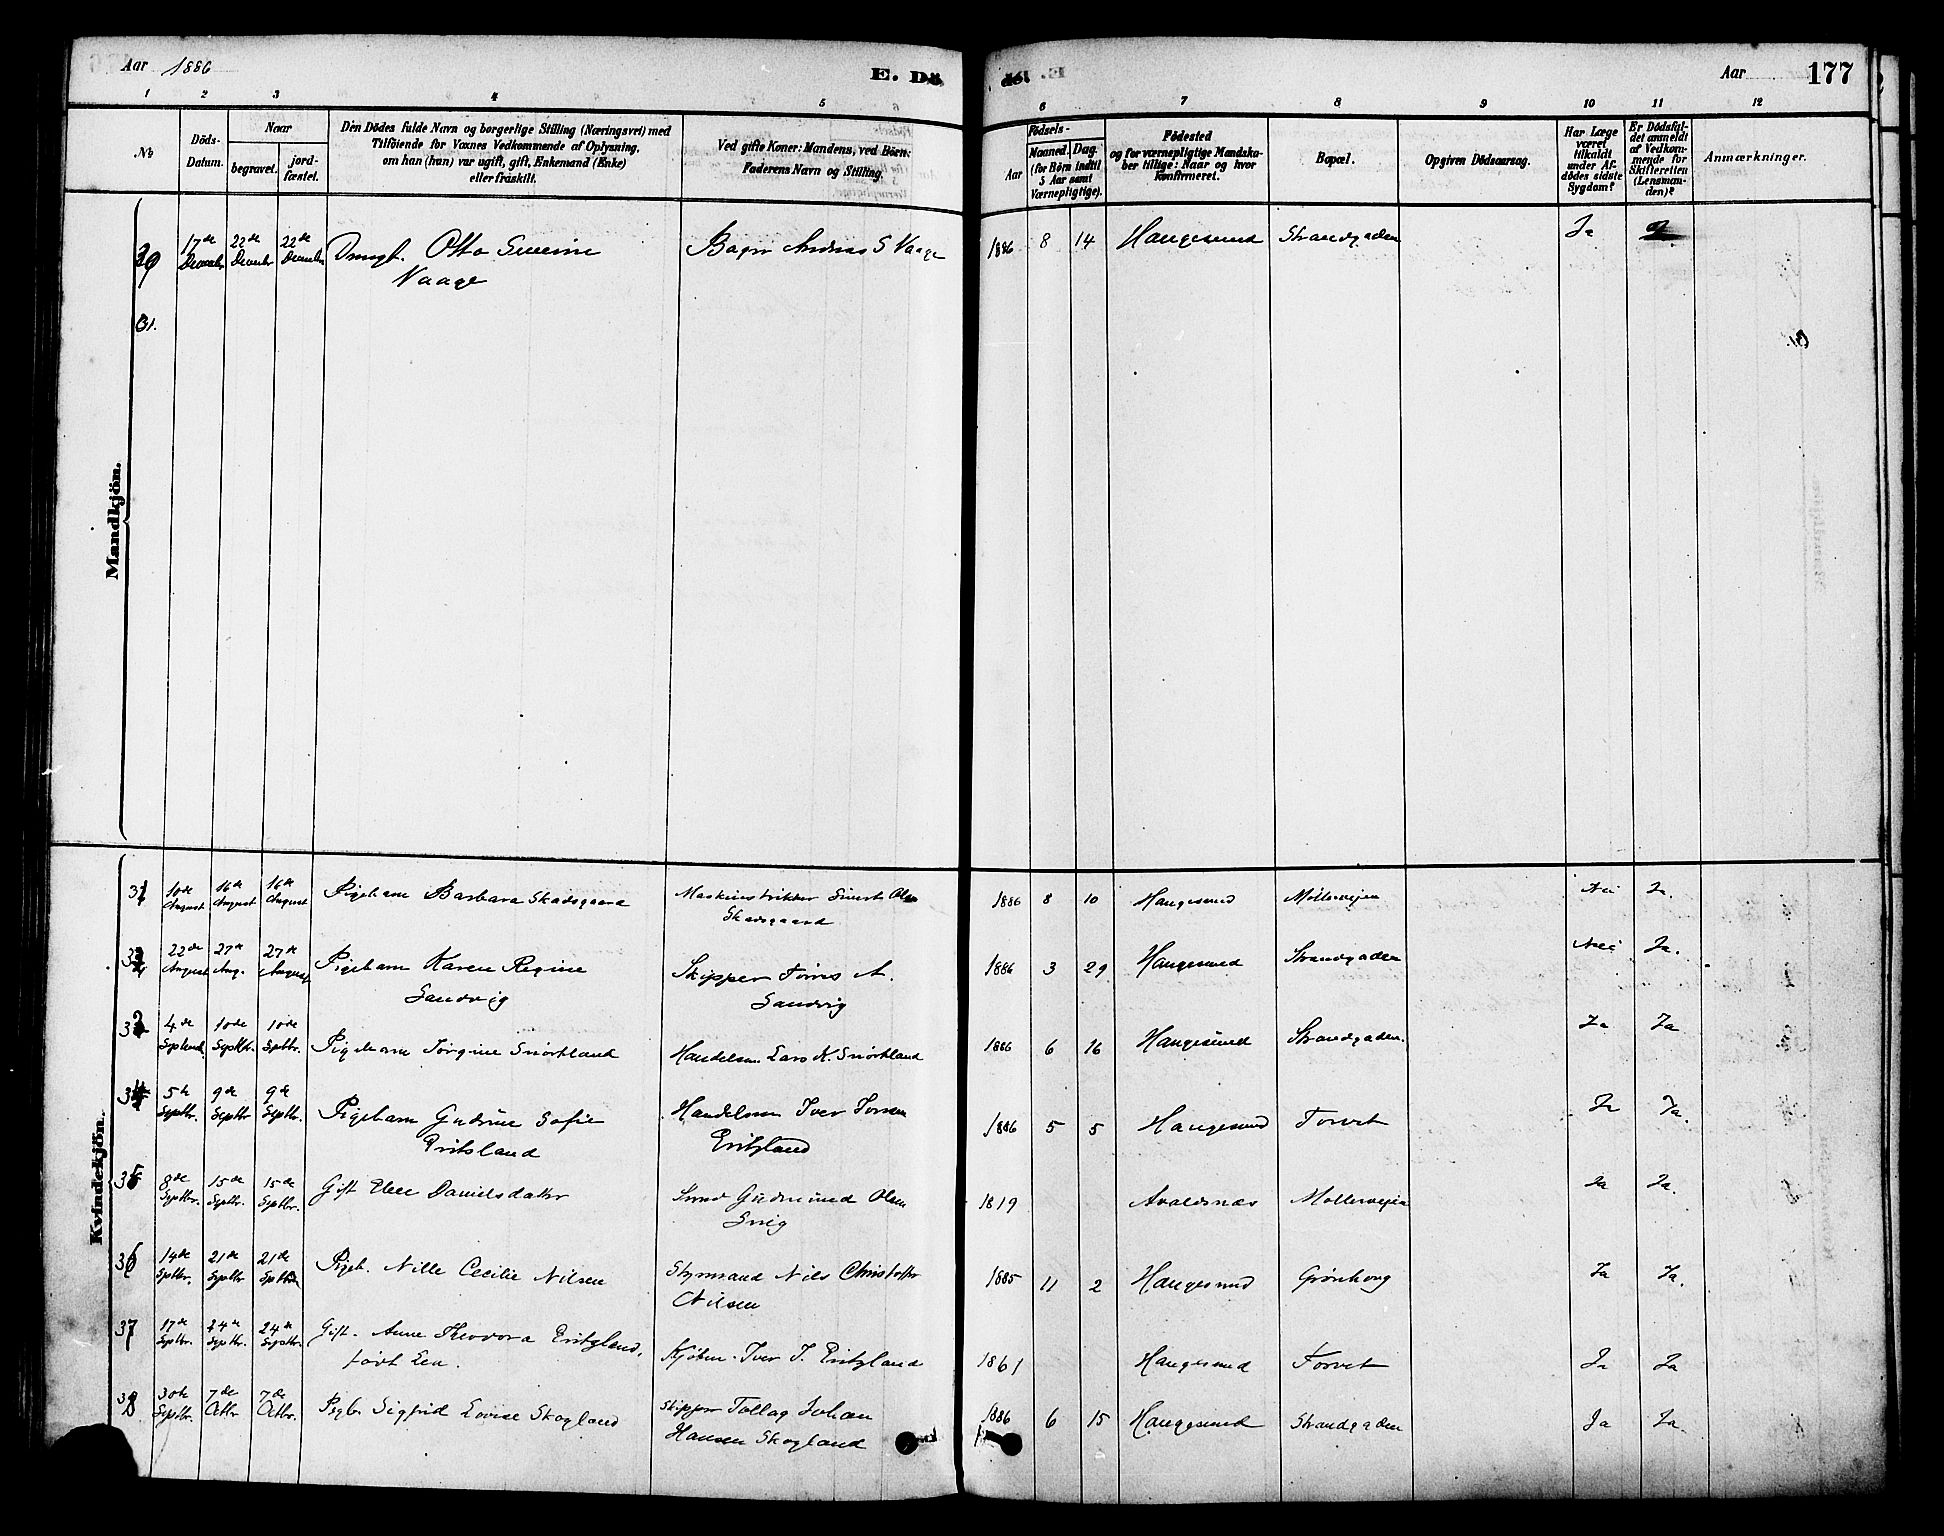 Aar 1886
E. Dö
dö
Aar
177
1 2 3 4 5 6 7 8 9 10 11 12
№
Döds-
Datum.
Naar
begravet.
jord-
fæstet.
Den Dödes fulde Navn og borgerlige Stilling (Næringsvei) med
Tilföiende for Voxnes Vedkommende af Oplysning,
om han (hun) var ugift, gift, Enkemand (Enke)
eller fraskilt.
Ved gifte Koner: Mandens, ved Börn:
Faderens Navn og Stilling.
Födsels-
Aar
Maaned.
Dag.
(for Börn indtil
5 Aar samt
Værnepligtige).
Födested
og for værnepligtige Mandska-
ber tillige: Naar og hvor
Konfirmeret.
Bopæl.
Opgiven Dödsaarsag.
Har Læge
været
tilkaldt
under Af-
dödes sidste
Sygdom?
Er Dödsfal-
det anmeldt
af Vedkom-
mende for
Skifteretten
(Lensman-
den)?
Anmærkninger.
Mandkjön.
17de 22de 22de Drengb. Otto Severine Bager Andreas S Vaage 1886 8 14 Haugesund Strandgaden Ja
December December December Vaage
31.
Kvindekjön.
10de 16de 16de Pigebarn Barbara Skadsgaard Sivert Olsen 1886 8 10 Haugesund Møllerveien Nei Ja.
August August August Skadsgaard
22de 27de 27de Pigebarn Karen Regine Skipper A. 1886 3 29 Haugesund Strandgaden Nei Ja.
August Aug. August Sandvig Sandvig
4de 10de 10de Pigebarn Jørgine Snørtland Handelsm. Lars K. Snørtland 1886 6 16 Haugesund Strandgaden. Ja Ja
Septemb. Septbr. Septbr.
34 5te 9de 9de Pigebarn Gudrun Sofie Handelsm Iver 1886 5 5 Haugesund Torvet Ja Ja.
Septbr. Septbr Septbr. Eritsland Eritzland
35 8de 15de 15de Gift Danielsdatter Smed Gudmund Olsen 1819 Avaldsnæs Møllerveien Ja Ja.
Septbr. Septbr. Septbr.
36 14de 21de 21de Pigeb. Nille Cecilie Nilsen Styrmand Nils Christoffer 1885 11 2 Haugesund Grønhoug Ja Ja.
Septbr. Septbr Septbr Nilsen
37 17de 24de 24de Gift. Anne Theodora Eritzland, Kjøbm. Iver J. Eritzland 1861 Haugesund Torvet Ja Ja
Septbr. Septbr. Septbr. født Lea.
38 30te 7de 7de Pigb. Sigfrid Lovise Skogland Skipper Tollag Johan 1886 6 15 Haugesund Strandgaden Ja Ja.
Septbr. Octbr Octbr. Hansen Skogland